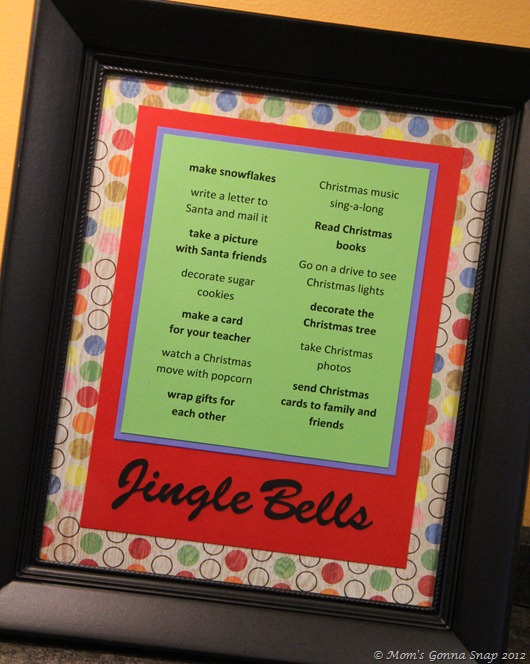 make snowflakes
write a letter to
Santa and mail it
take a picture
with Santa friends
decorate sugar
cookies
make a card
for your teacher
watch a Christmas
move with popcorn
wrap gifts for
each other
Christmas music
sing-a-long
Read Christmas
books
Go on a drive to see
Christmas lights
decorate the
Christmas tree
take Christmas
photos
send Christmas
cards to family and
friends
Jingle Bells
© Mom's Gonna Snap 2012